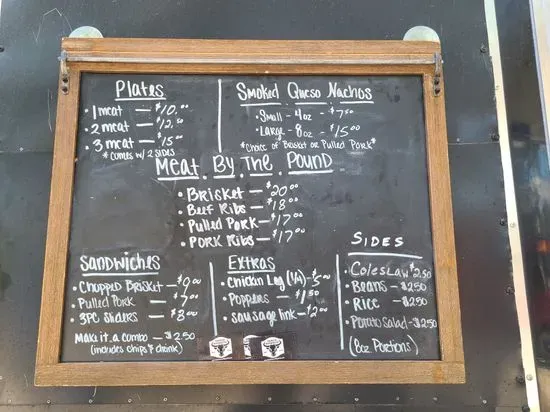 Plates
• 1 meat — $10.00
• 2 meat — $12.50
• 3 meat — $15.00
*Comes w/ 2 SIDES
Smoked Queso Nachos
• Small - 4oz - $7.50
• Large - 8oz - $15.00
*Choice of Brisket or Pulled Pork*
Meat By The Pound
• Brisket — $20.00
• Beef Ribs — $18.00
• Pulled Pork — $17.00
• Pork Ribs — $17.00
Sandwiches
• Chopped Brisket — $9.00
• Pulled Pork — $7.00
• 3PC Sliders — $8.00
Make it a combo — $2.50
(includes chips & drink)
Extras
• Chicken Leg (1/4) - $5.00
• Poppers — $1.50
• Sausage link — $2.00
SIDES
• Coleslaw $2.50
• Beans — $2.50
• Rice — $2.50
• Potato Salad - $2.50
(8oz Portions)